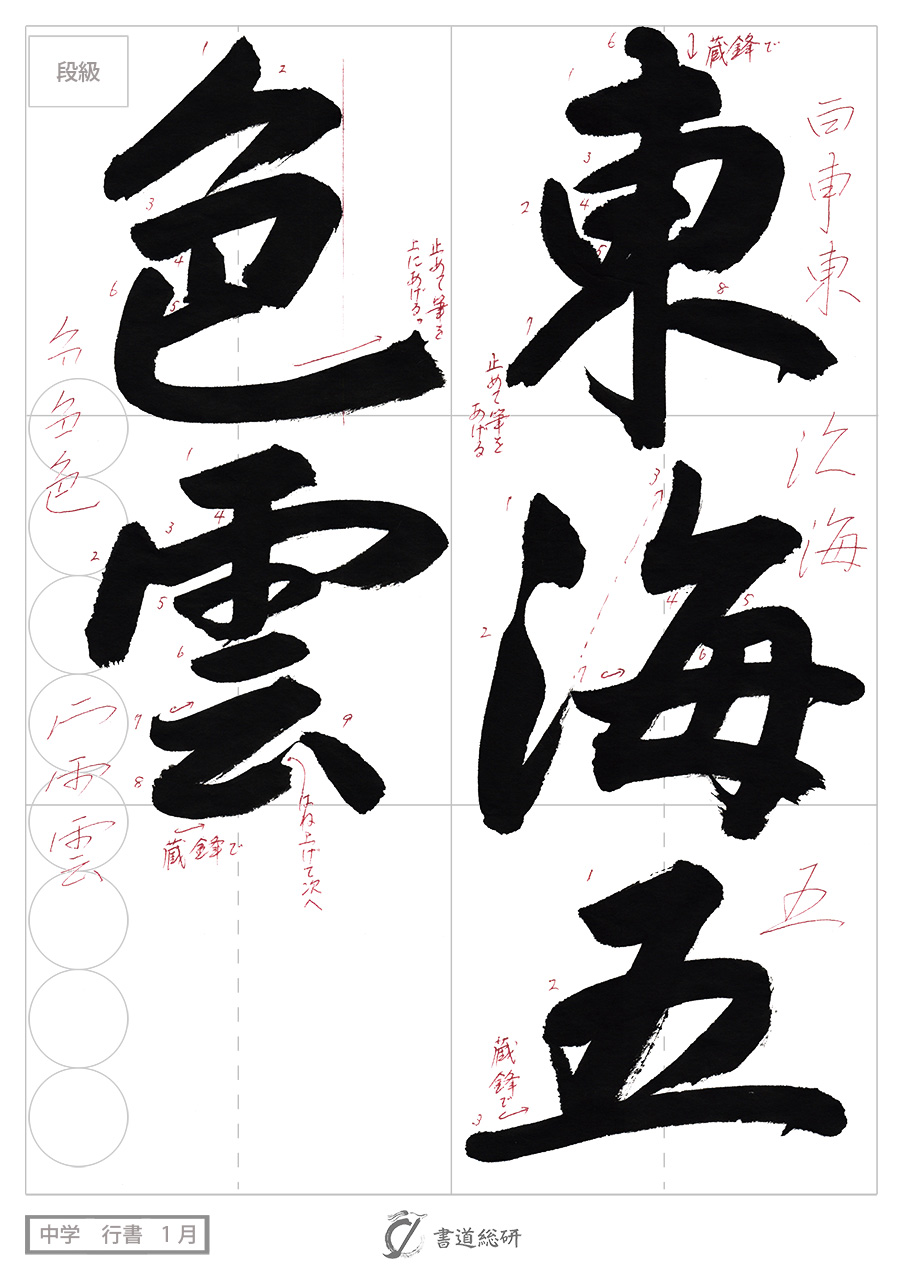 東海五
色雲
蔵鋒で
止めて筆を
あげる
蔵鋒で
止めて筆を
上にあげる。
蔵鋒で
はね上げて次へ
東
海
五
色
雲
段級
中学 行書 1月
書道総研